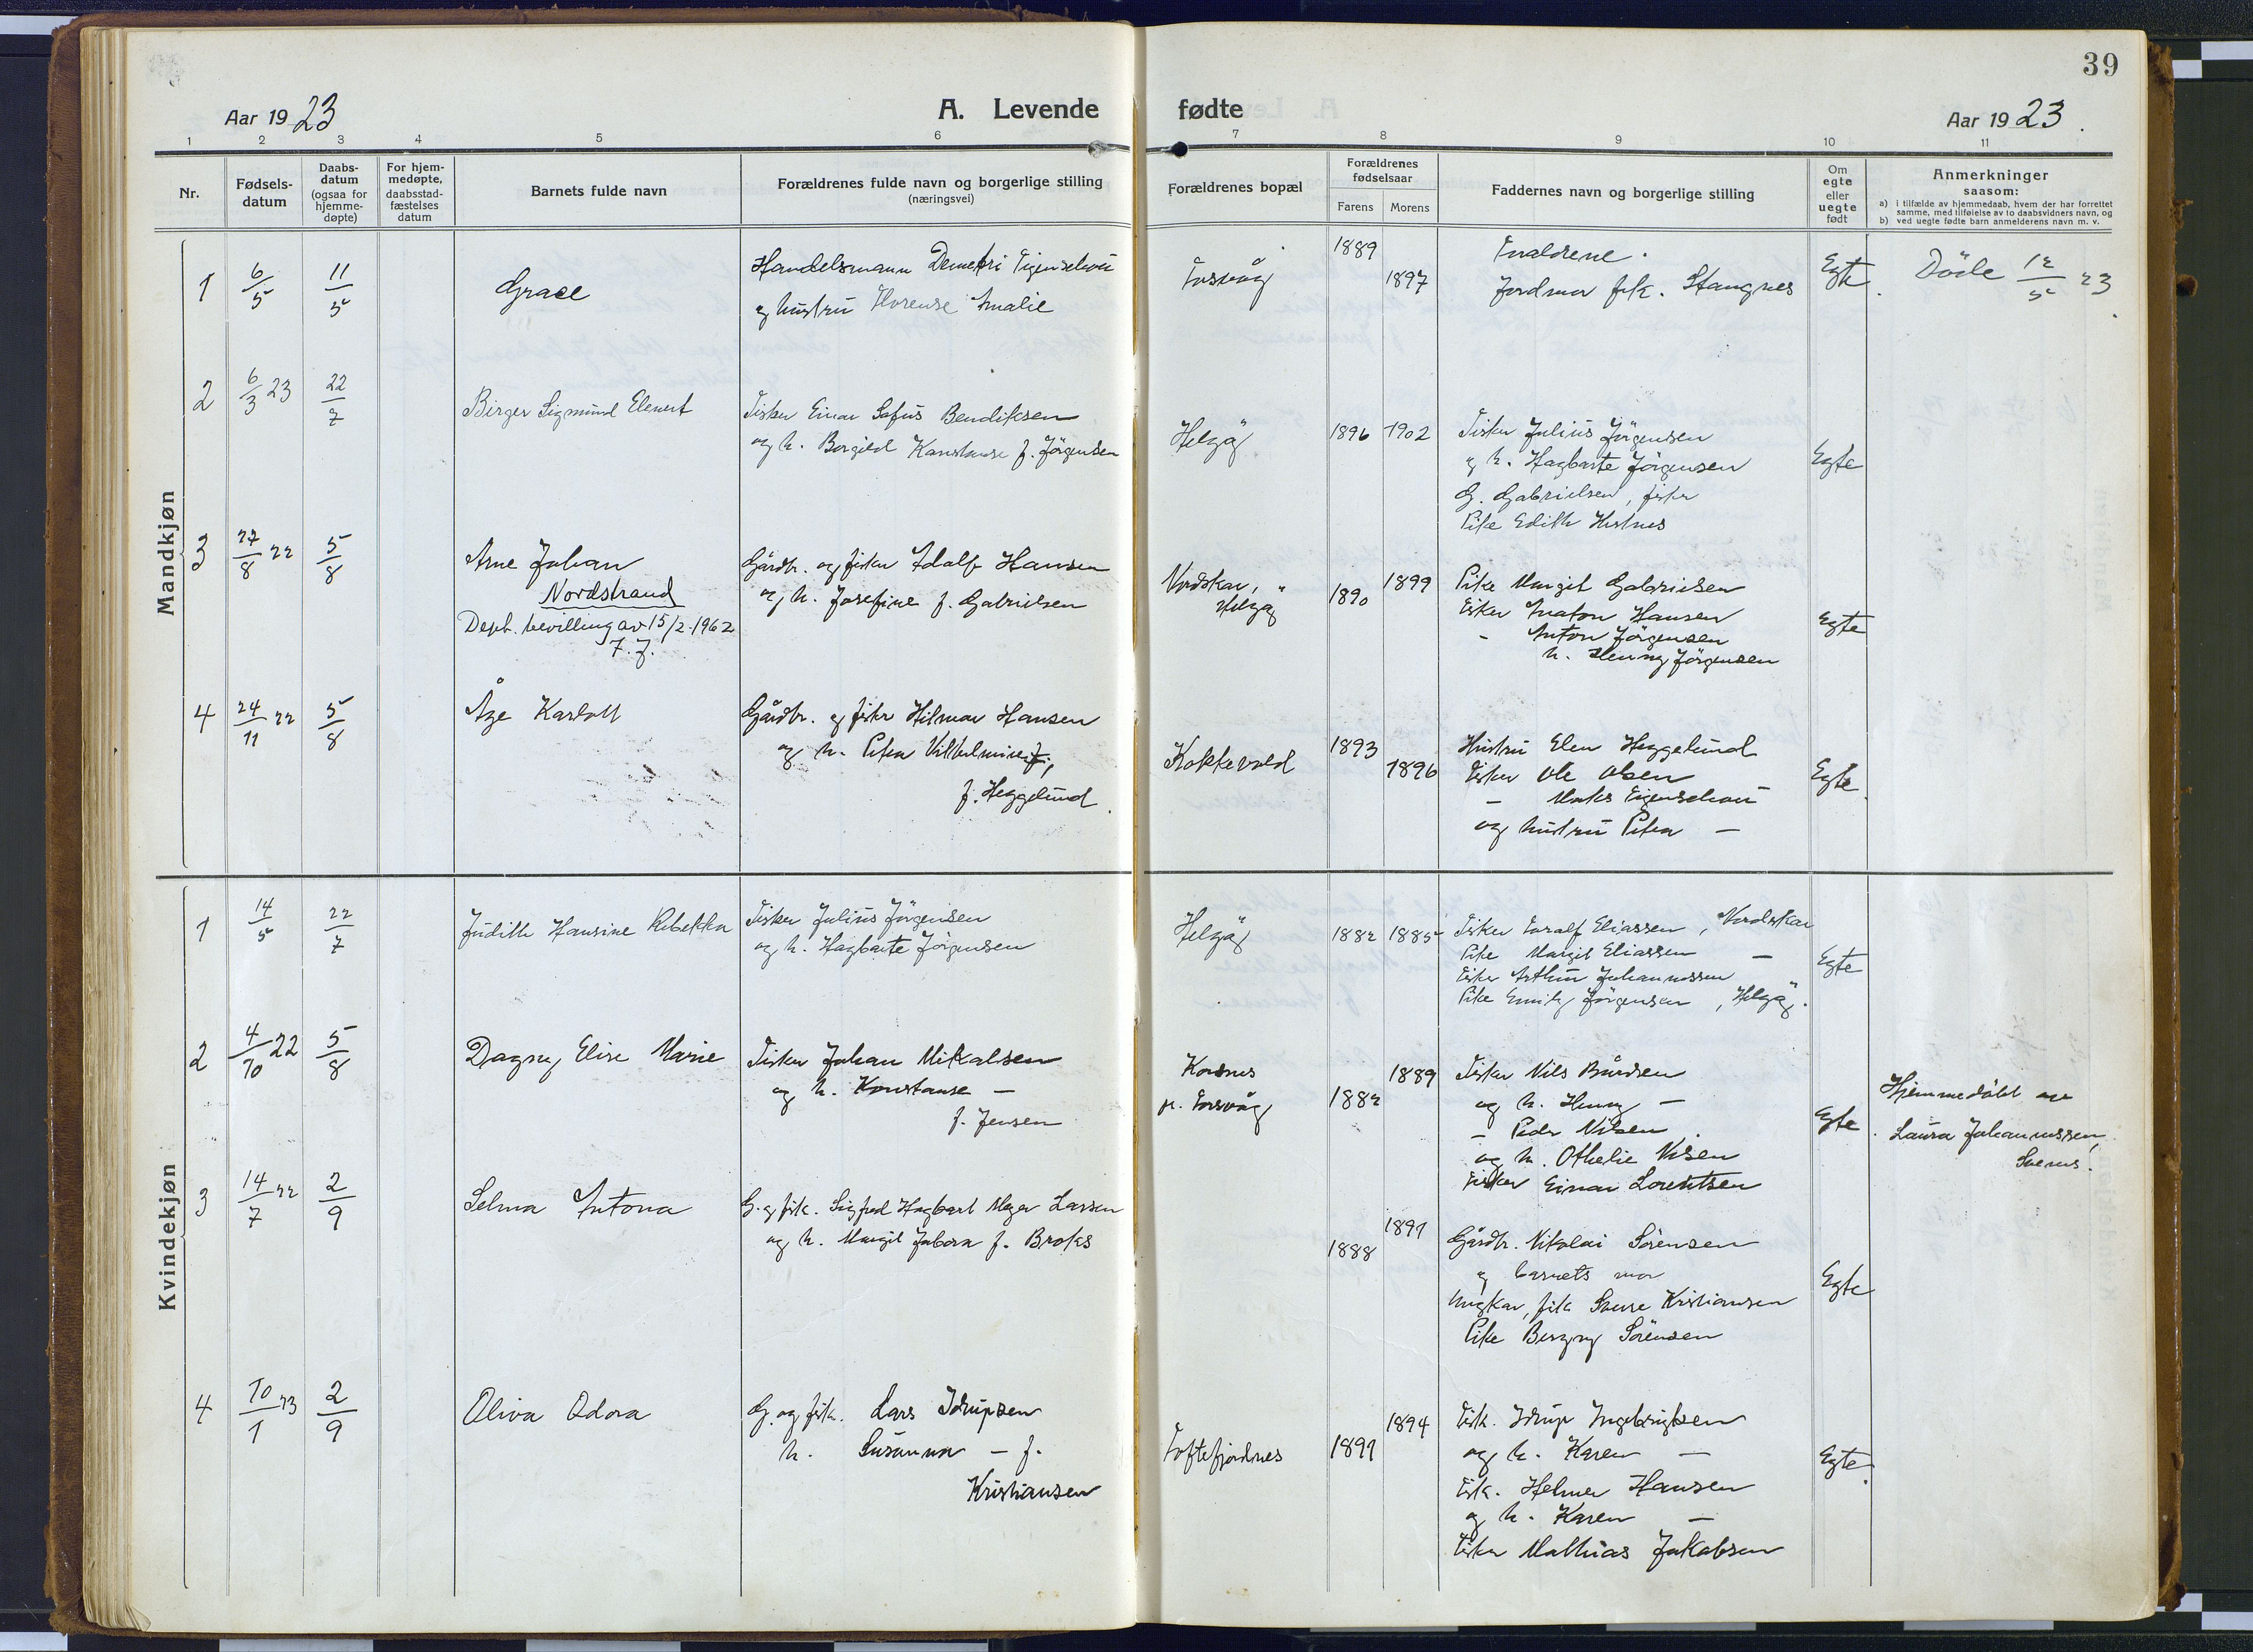 39
Aar 1923
A. Levende fødte
Aar 1923.
1 2 3 4 5 6 7 8 9 10 11
Nr.
Fødsels-
datum
Daabs-
datum
(ogsaa for
hjemme-
døpte)
For hjem-
medøpte,
daabsstad-
fæstelses
datum
Barnets fulde navn
Forældrenes fulde navn og borgerlige stilling
(næringsvei)
Forældrenes bopæl
Forældrenes
fødselsaar
Farens Morens
Faddernes navn og borgerlige stilling
Om
egte
eller
uegte
født
Anmerkninger
saasom:
a) i tilfælde av hjemmedaab, hvem der har forrettet
samme, med tilføielse av to daabsvidners navn, og
b) ved uegte fødte barn anmelderens navn m. v.
Mandkjøn
1 6/5 11/5 Grace
Handelsmann Demetri Figenschou
og hustru Amalie
Torsvåg 1889 1897
Foreldrene.
Jordmor frk. Stangnes
Egte.
Døde 12/5 23.
2 6/3 23 22/7 Birger Sigmund Elenert
Fisker Einar Sofus Bendiksen
og h. Borgild Konstanse f. Jörgensen
Helgöy 1896 1902
Fisker Julius Jörgensen
og h. Hagbarte Jörgensen
G. Gabrielsen, fisker
Pike Edith
Egte
3 27/8 22 5/8 Arne Johan
Nordstrand
Dept. bevilling av 15/2-1962
Gårdbr. og fisker Adolf Hansen
og h. Josefine f. Gabrielsen
Nordskar,
Helgöy 1890 1899
Pike Margit Gabrielsen
Fisker Hansen
- Anton Jörgensen
h. Henny Jörgensen
Egte
4 24/11 22 5/8 Åge Karlott
Gårdbr. og fisker Hilmar Hansen
og h. Petra Vilhelmine f.,
f. Heggelund.
Kokkevold 1893 1896
Hustru Elen Heggelund
Fisker Ole Olsen
- Figenschou
og hustru Petra -
Egte.
Kvindekjøn
1 14/5 22/7 Judith Hansine Rebekka
Fisker Julius Jörgensen
og h. Hagbarte Jörgensen
Helgöy 1882 1885
Fisker Toralf Eliassen, Nordskar
Pike Margit Eliassen -
Fisker Arthur Johannessen
Pike Emily Jörgensen, Helgöy.
Egte
2 4/10 22 5/8 Dagny Elise Marie
Fisker Johan Mikalsen
og h. Konstanse -
f. Jensen
Korsnes
pr. Torsvåg 1882 1889
Fisker Nils Bårdsen
og h. Henny -
- Peder Nilsen
og h. Othelie Nilsen
Fisker Einar Lorentsen
Egte.
Hjemmedöbt av
Laura Johannessen,
3 14/7 22 2/9 Selma Antona
G. og fisk. Sigfred Hagbart Meyer Larsen
og h. Margit f. Broks
1888 1891
Gårdbr. Nikolai Sörensen
og barnets mor
Ungkar, fisk Sverre Kristiansen
Pike Bergny Sörensen
Egte
4 10/1 23 2/9 Oliva Odora
G. og fisk. Lars Idrupsen
h. Susanna - f.
Kristiansen
Toftefjordnes 1891 1894
Fisk. Idrup Ingebrigtsen
og h. Karen -
Fisk. Helmer Hansen
og h. Karen -
Fisker Mathias Jakobsen
Egte.